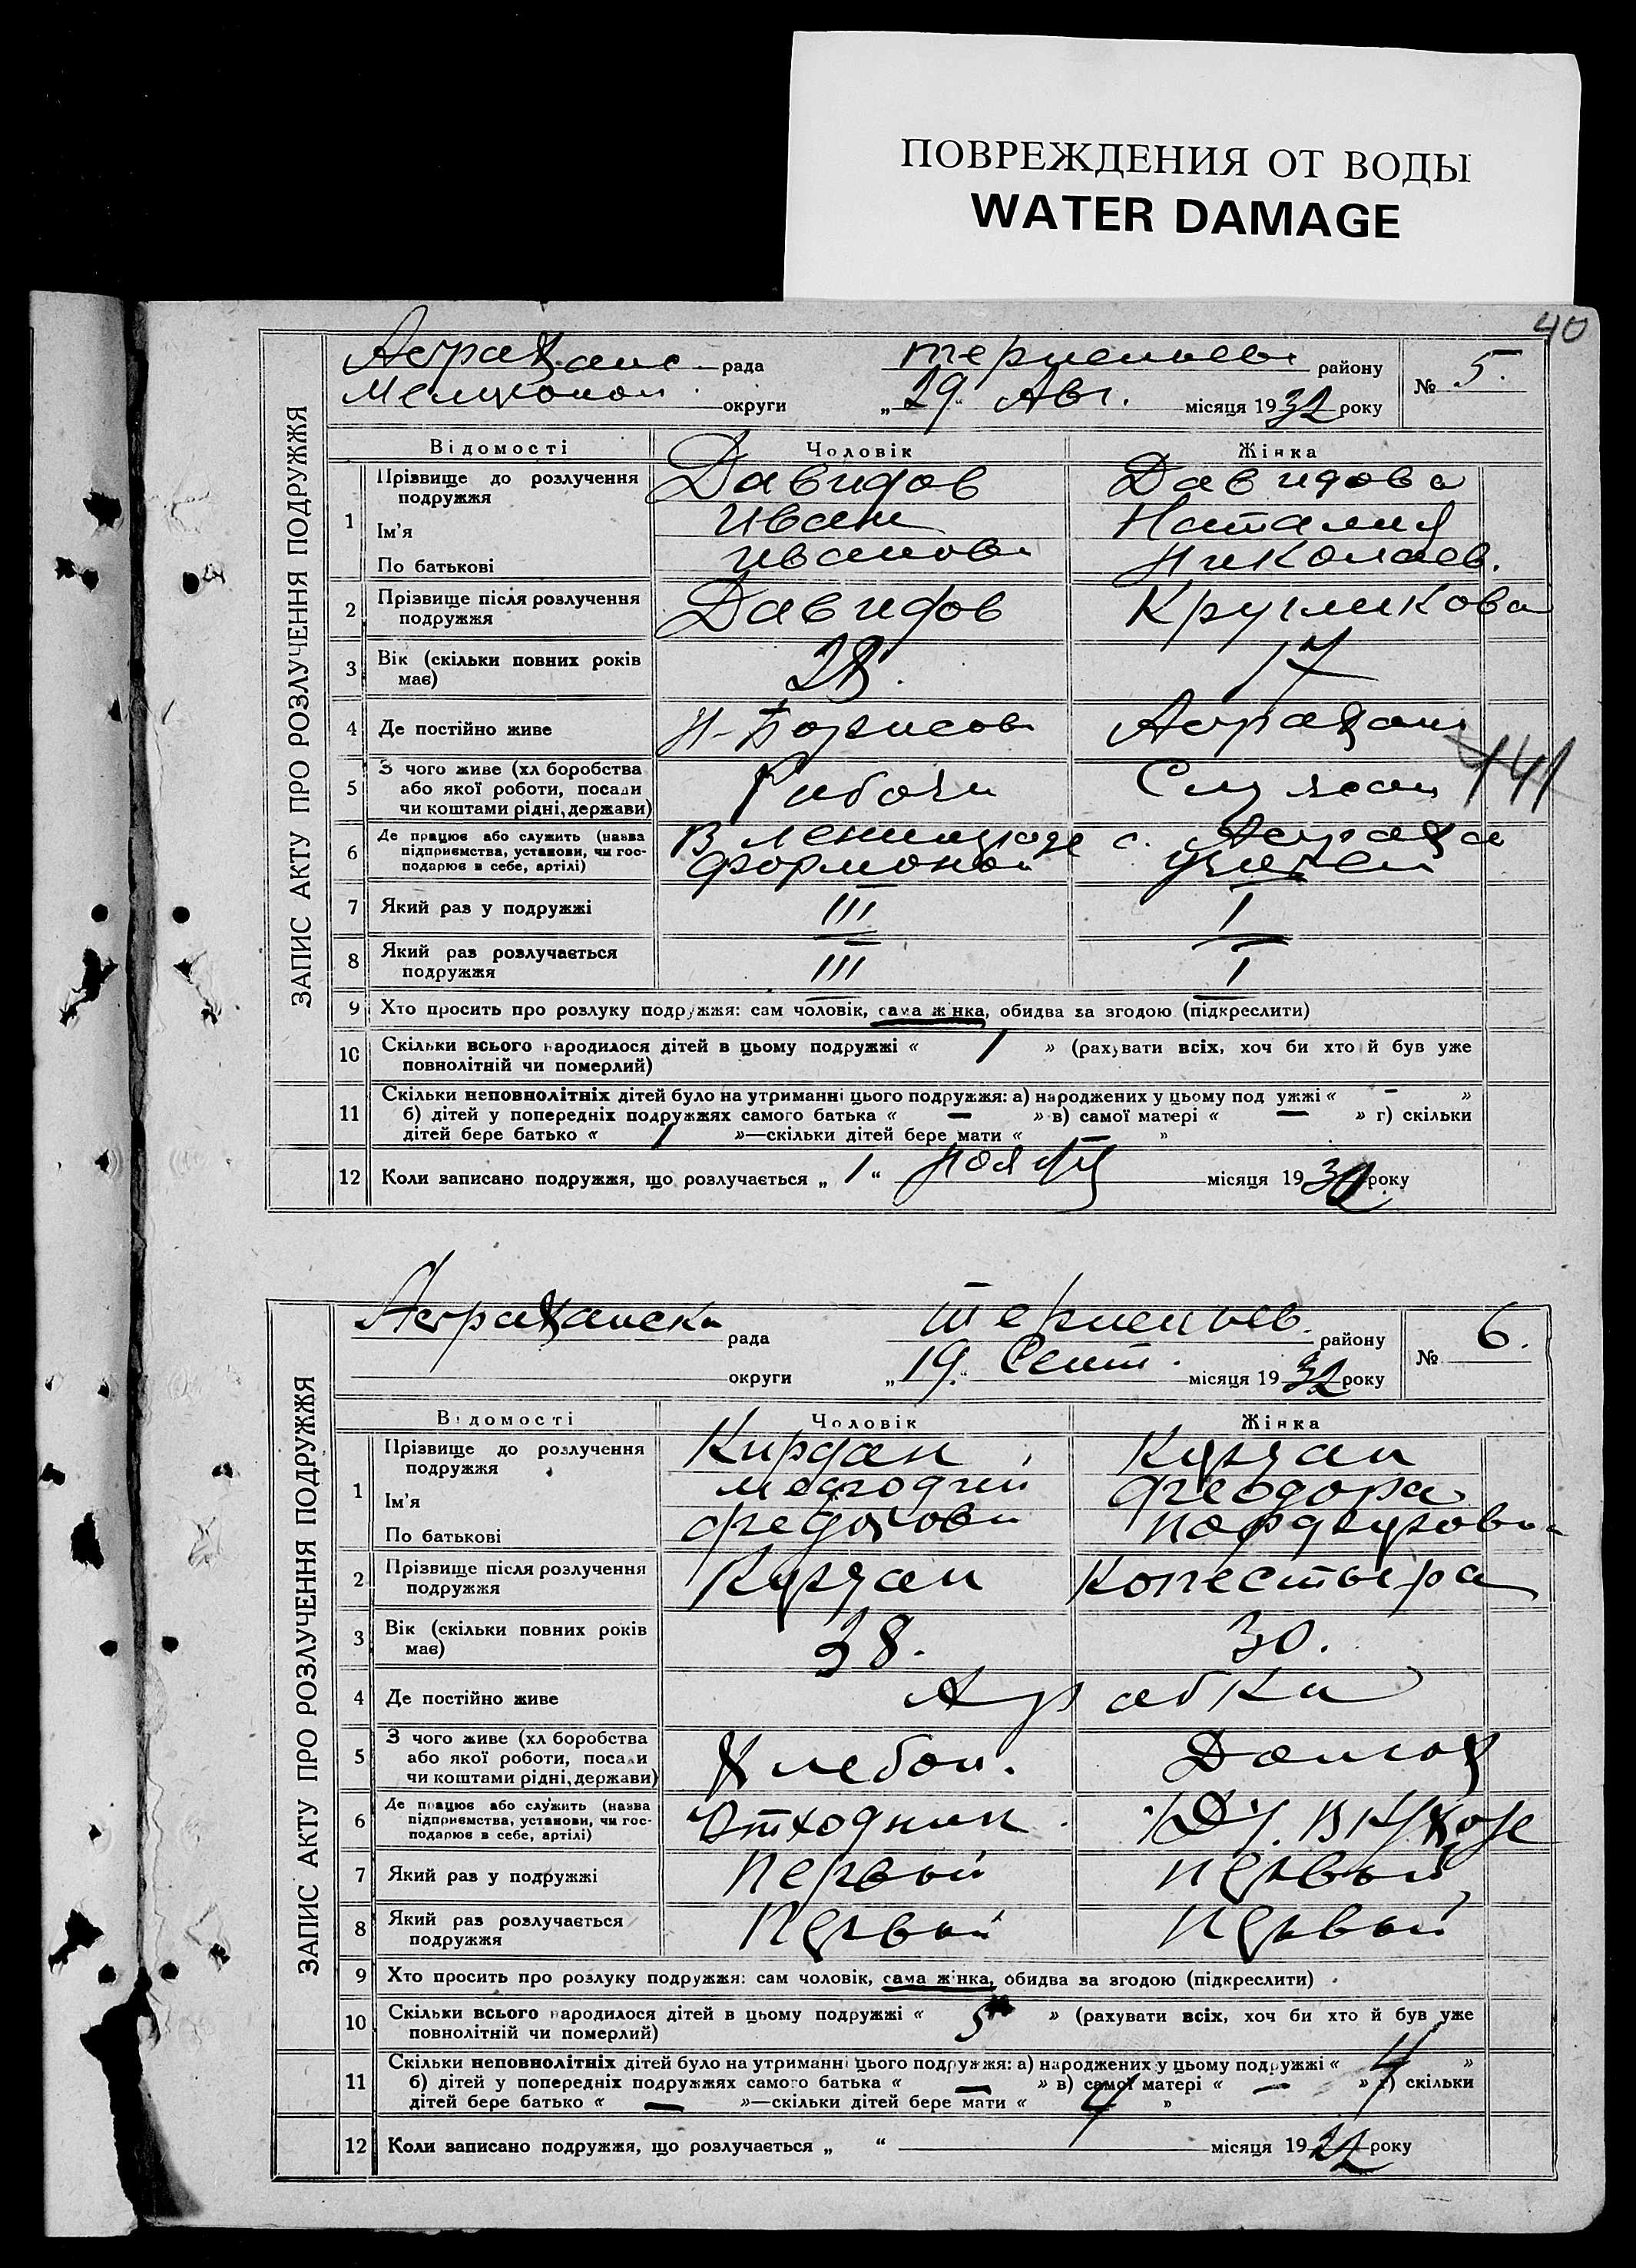 ПОВРЕЖДЕНИЯ ОТ ВОДЫ
WATER DAMAGE
40
ЗАПИС АКТУ ПРО РОЗЛУЧЕННЯ ПОДРУЖЖЯ
Астраханс рада району № 5.
округи „29" Авг. місяця 1932 року
Відомості Чоловік Жінка
1 Прізвище до розлучення подружжя Давидов Давидова
Ім'я Иван Наталия
По батькові Иванов Николаев.
2 Прізвище після розлучення подружжя Давидов Кругликова
3 Вік (скільки повних років має) 28. 17
4 Де постійно живе Н-Борисов Астрахан
441
5 З чого живе (хліборобства або якої роботи, посади чи коштами рідні, держави) Рабочи Служащ
6 Де працює або служить (назва підприємства, установи, чи господарює в себе, артілі) В Ленинграде с. Астраха
7 Який раз у подружжі III I
8 Який раз розлучається подружжя III I
9 Хто просить про розлуку подружжя: сам чоловік, сама жінка, обидва за згодою (підкреслити)
10 Скільки всього народилося дітей в цьому подружжі « 1 » (рахувати всіх, хоч би хто й був уже
повнолітній чи померлий)
11 Скільки неповнолітніх дітей було на утриманні цього подружжя: а) народжених у цьому подружжі « — »
б) дітей у попередніх подружжях самого батька « — » в) самої матері « — » г) скільки
дітей бере батько « 1 »—скільки дітей бере мати « — »
12 Коли записано подружжя, що розлучається „ 1 " Ноября місяця 19 року
ЗАПИС АКТУ ПРО РОЗЛУЧЕННЯ ПОДРУЖЖЯ
Астраханска рада району № 6.
округи „19." Сент. місяця 1932 року
Відомості Чоловік Жінка
1 Прізвище до розлучення подружжя Кирдан Курдан
Ім'я Мефодий Феодора
По батькові Федорови
2 Прізвище після розлучення подружжя Курдан
3 Вік (скільки повних років має) 38. 30.
4 Де постійно живе Арабка
5 З чого живе (хліборобства або якої роботи, посади чи коштами рідні, держави) Хлебоп. Домхоз
6 Де працює або служить (назва підприємства, установи, чи господарює в себе, артілі) Отходник
7 Який раз у подружжі Первый Первый
8 Який раз розлучається подружжя Первый Первый
9 Хто просить про розлуку подружжя: сам чоловік, сама жінка, обидва за згодою (підкреслити)
10 Скільки всього народилося дітей в цьому подружжі « 5 » (рахувати всіх, хоч би хто й був уже
повнолітній чи померлий)
11 Скільки неповнолітніх дітей було на утриманні цього подружжя: а) народжених у цьому подружжі « 4 »
б) дітей у попередніх подружжях самого батька « — » в) самої матері « — » г) скільки
дітей бере батько « — »—скільки дітей бере мати « 4 »
12 Коли записано подружжя, що розлучається „ " місяця 1922 року